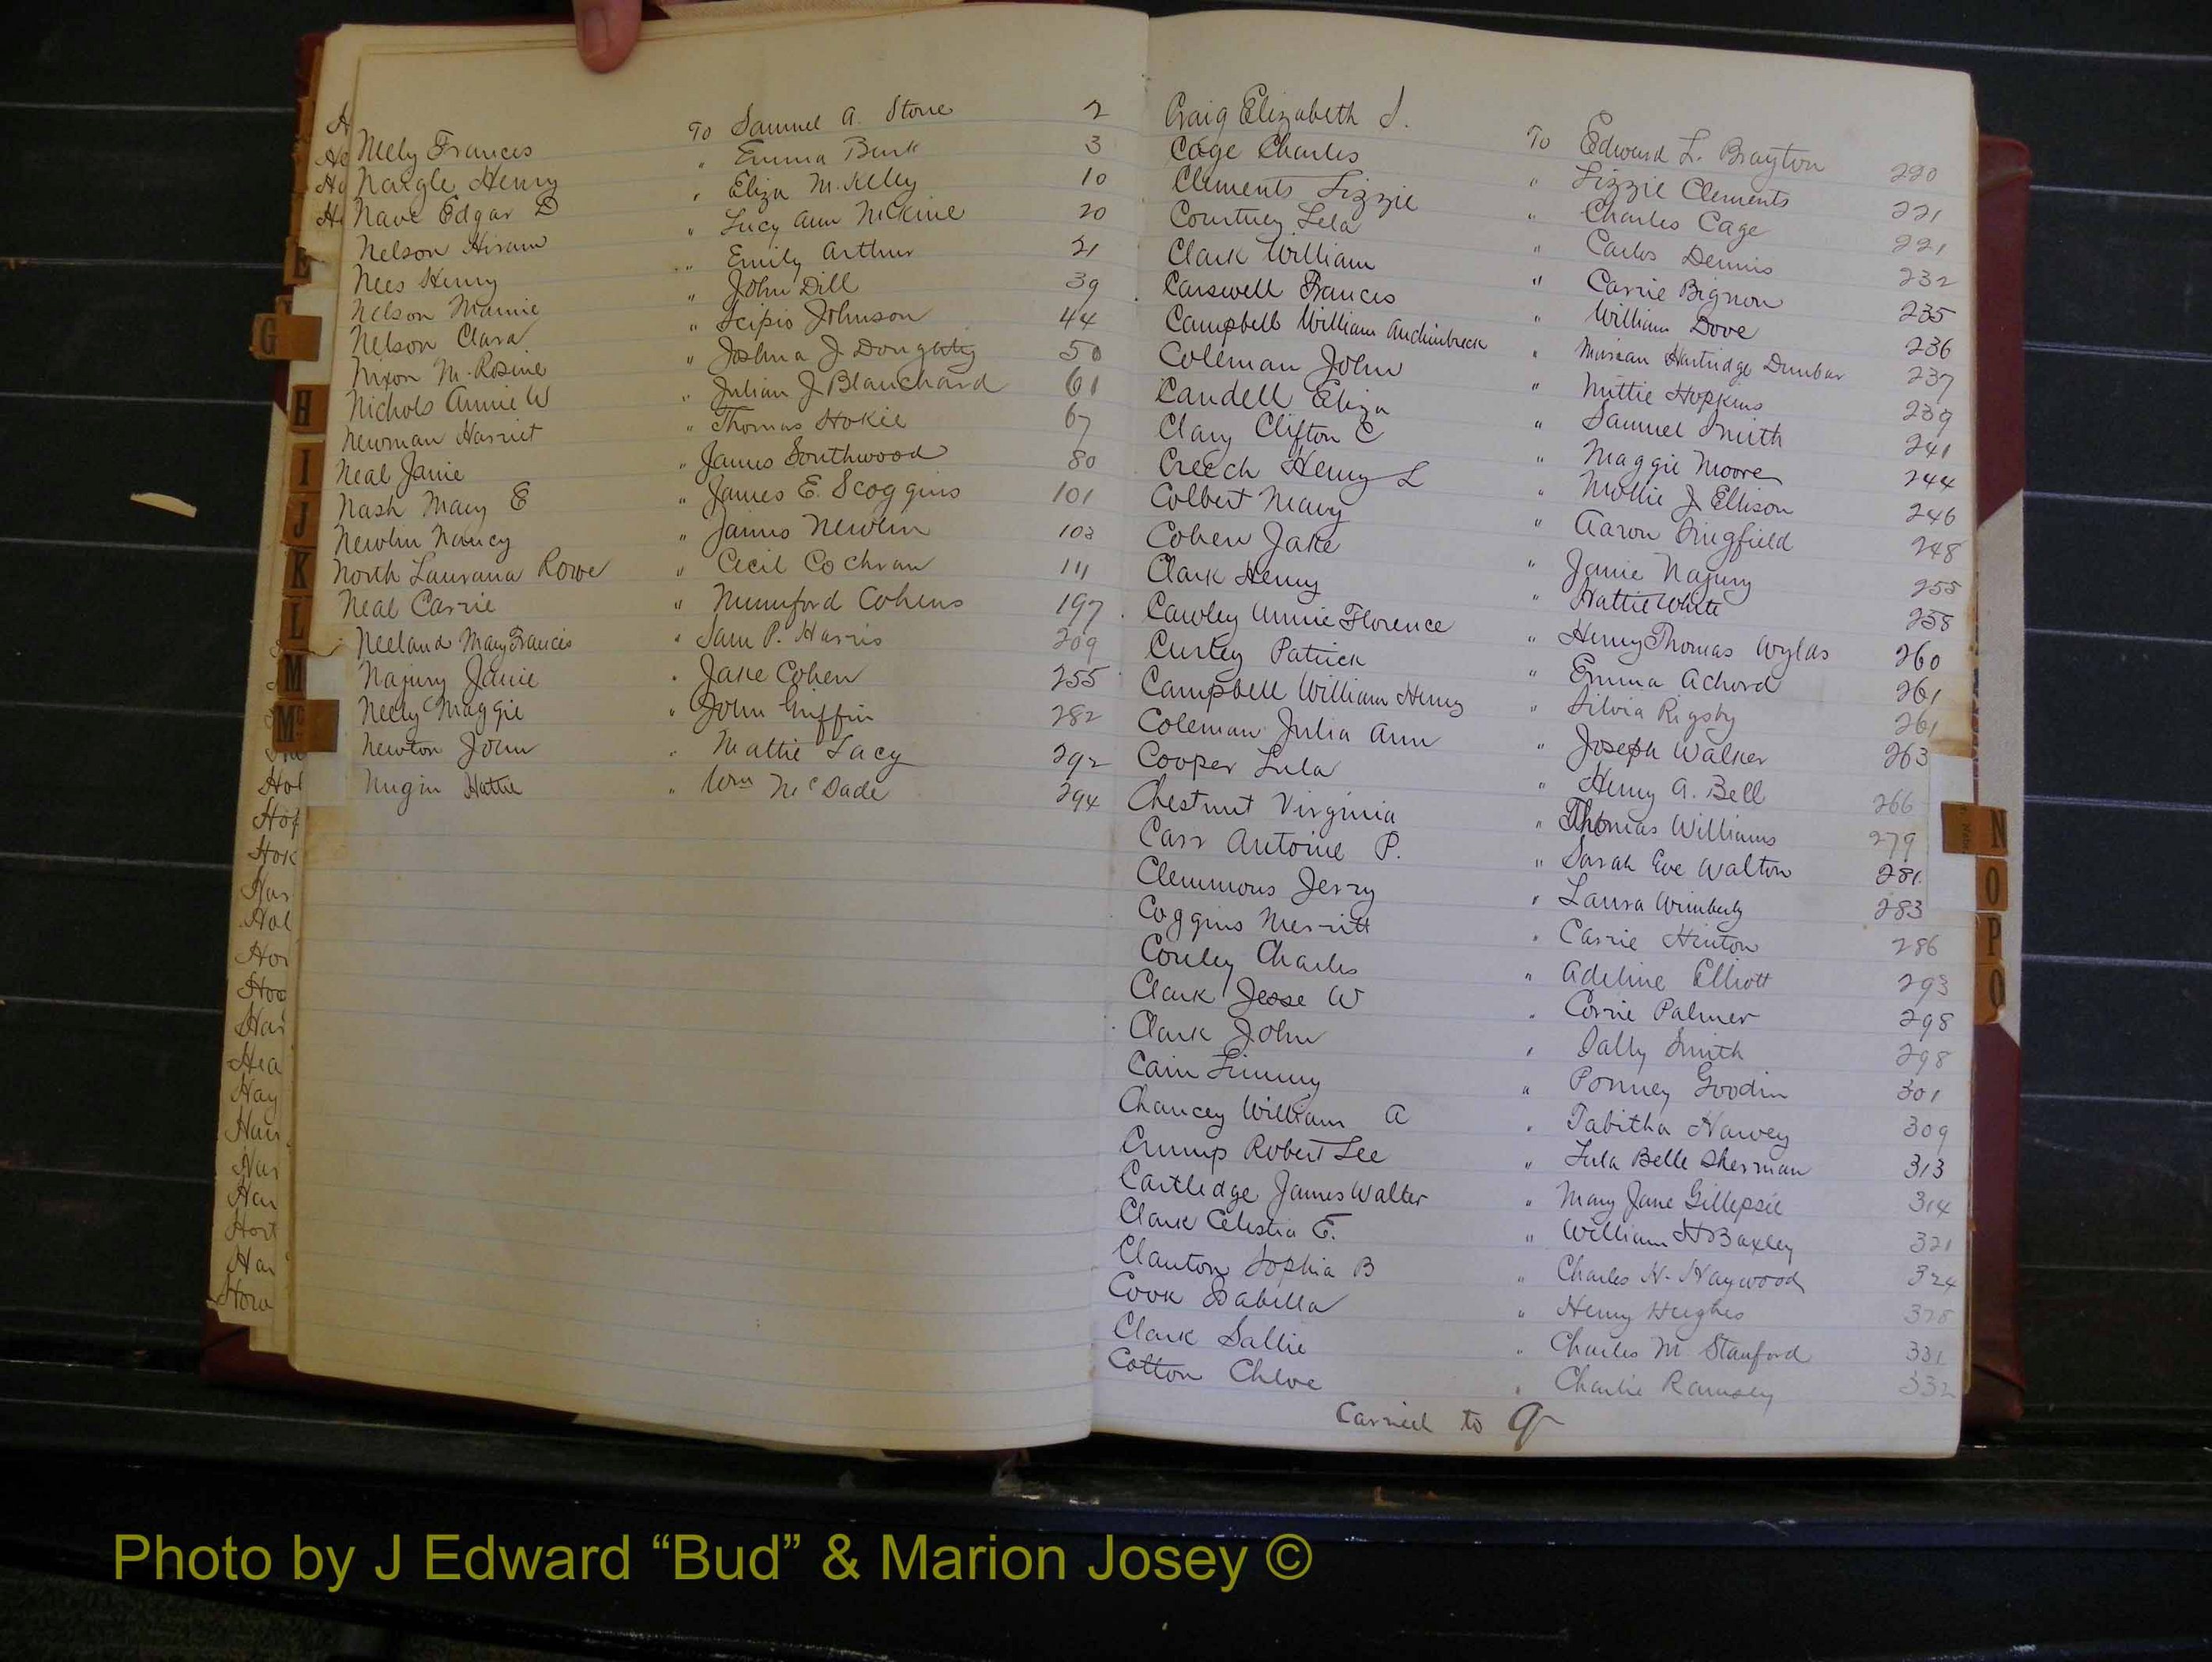 Neely Francis To Samuel A. Stone 2
Naigle Henry " Emma Burk 3
Nave Edgar D " Eliza M. Kelley 10
Nelson Hiram " Lucy Ann McKine 20
Nees Henry " Emily Arthur 21
Nelson Mamie " John Dill 39
Nelson Clara " Scipio Johnson 44
Nixon M. Rosine " Joshua J Doughty 50
Nichols Annie W " Julian J Blanchard 61
Newman Harriet " Thomas Hokie 67
Neal Janie " James Southwood 80
Nash Mary E " James E. Scoggins 101
Newlin Nancy " James Newlin 102
North Laurana Rowe " Cecil Cochran 111
Neal Carrie " Mumford Cohens 197
Neeland Mary Francis " Sam P. Harris 209
Najury Janie " Jake Cohen 255
Neely Maggie " John Griffin 282
Newton John " Mattie Lacy 292
Nugin Hattie " Wm McDade 294
Craig Elizabeth J. To Edward L. Brayton 220
Cage Charles " Lizzie Clements 221
Clements Lizzie " Charles Cage 221
Courtney Lela " Carlos Dennis 232
Clark William " Carrie Bignon 235
Carswell Frances " William Dove 236
Campbell William Auchinbreck " Marian Hartridge Dunbar 237
Coleman John " Mittie Hopkins 239
Candell Eliza " Samuel Smith 241
Clary Clifton C " Maggie Moore 244
Creech Henry L " Mollie J. Ellison 246
Colbert Mary " Aaron Singfield 248
Cohen Jake " Janie Najury 255
Clark Henry " Hattie White 258
Cawley Annie Florence " Henry Thomas Wylds 260
Curley Patrick " Emma Achord 261
Campbell William Henry " Silvia Rigsby 261
Coleman Julia Ann " Joseph Walker 263
Cooper Lula " Henry A. Bell 266
Chestnut Virginia " Thomas Williams 279
Carr Antoine P. " Sarah Eve Walton 281
Clemmons Jerry " Laura Wimberly 283
Coggins Merritt " Carrie Hinton 286
Conley Charles " Adeline Elliott 293
Clark Jesse W " Corrie Palmer 298
Clark John " Sally Smith 298
Cain Jimmy " Ponney Goodin 301
Chancey William A " Tabitha Harvey 309
Crump Robert Lee " Lula Belle Sherman 313
Cartledge James Walter " Mary Jane Gillepsie 314
Clark Celestia E. " William H Baxley 321
Clanton Sophia B " Charles N. Haywood 324
Cook Isabella " Henry Hughes 328
Clark Sallie " Charles M. Stanford 331
Cotton Chloe " Charlie Ramsey 332
Carried to Q
E
G
H
I
J
K
L
M
Mc
N
O
P
Q
Hol
Hop
Hok
Har
Hal
Hor
Hoo
Har
Hea
Hay
Han
Har
Har
Hort
Har
How
Photo by J Edward “Bud” & Marion Josey ©